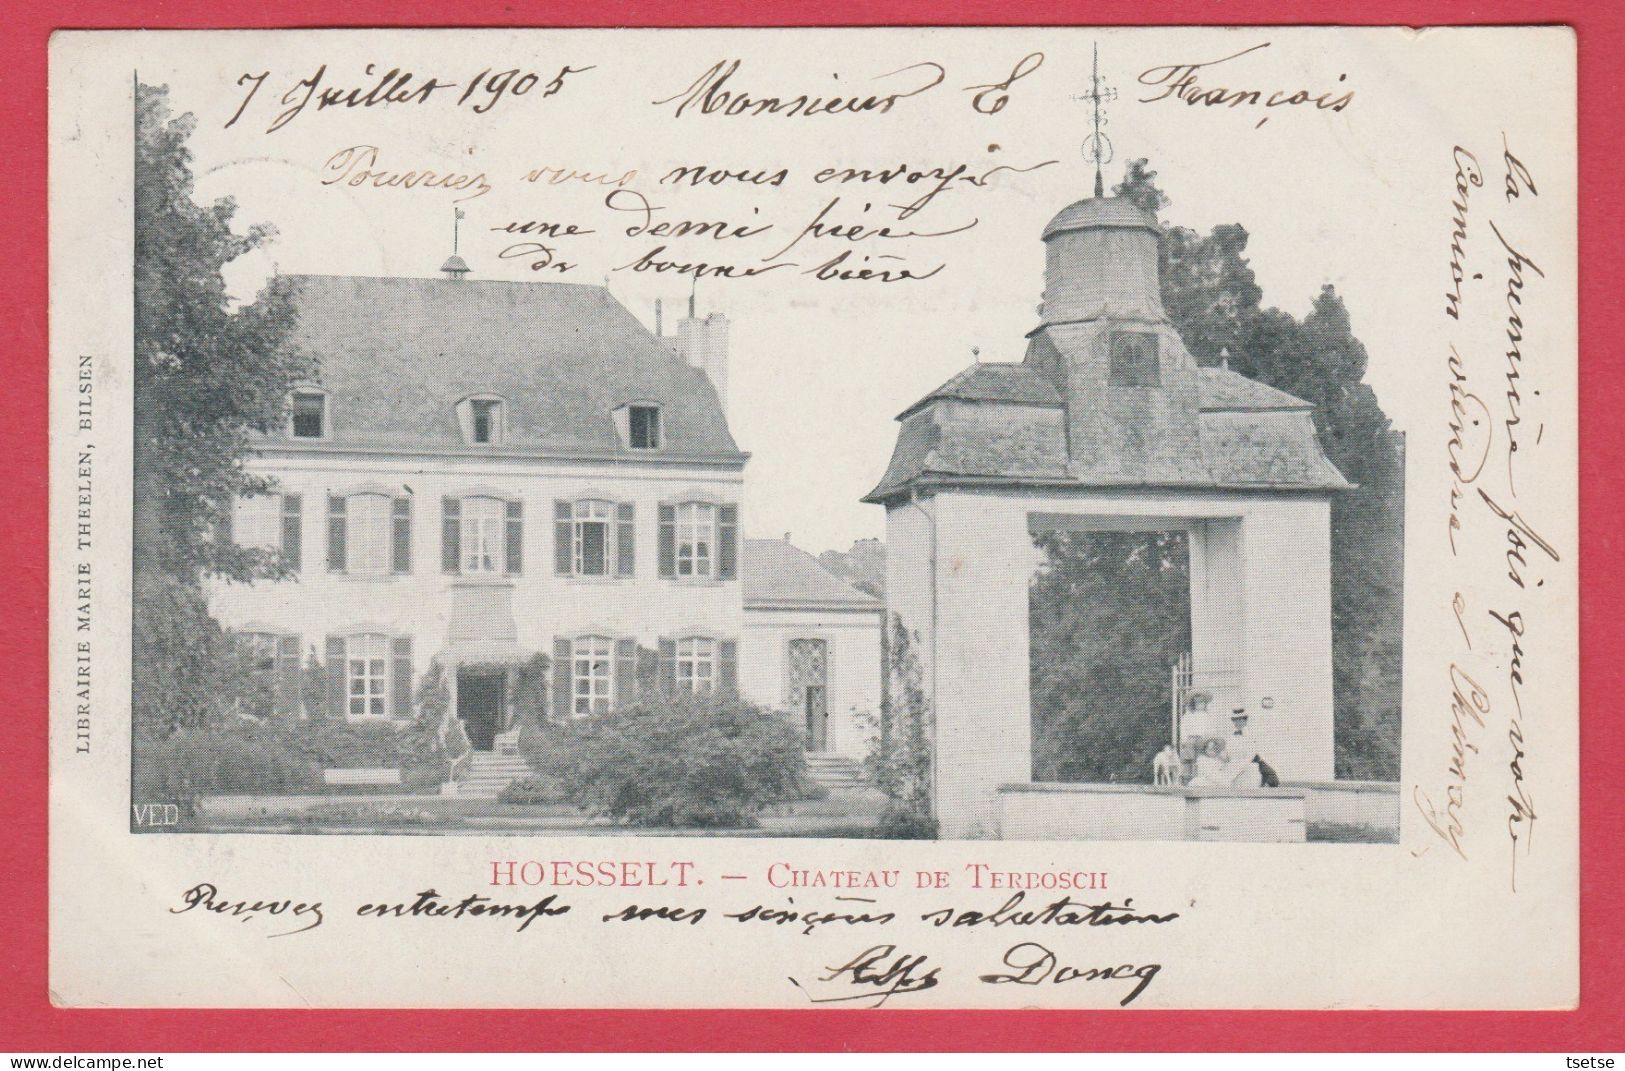 7 Juillet 1905 Monsieur E François
Pourriez vous nous envoyer
une demi pièce
de bonne bière
la premiere fois que votre
Camion viendra a Chimay
LIBRAIRIE MARIE THEELEN, BILSEN
VED
HOESSELT. — CHATEAU DE TERBOSCH
Reçevez entretemps mes sinçères salutation
Alf Doncq
tsetse